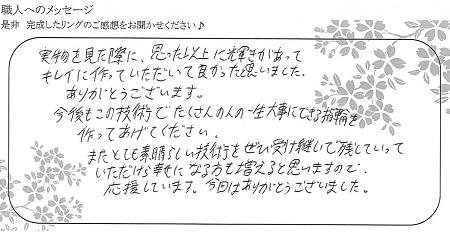 職人へのメッセージ
是非 完成したリングのご感想をお聞かせください♪
実物を見た際に、思った以上に輝きがあって
キレイに作っていただいて良かった思いました。
ありがとうございます。
今後もこの技術でたくさんの人の一生大事にできる指輪を
作ってあげてください。
またとても素晴らしい技術をぜひ受け継いで残していって
いただけると幸せになる方も増えると思いますので、
応援しています。今回はありがとうございました。